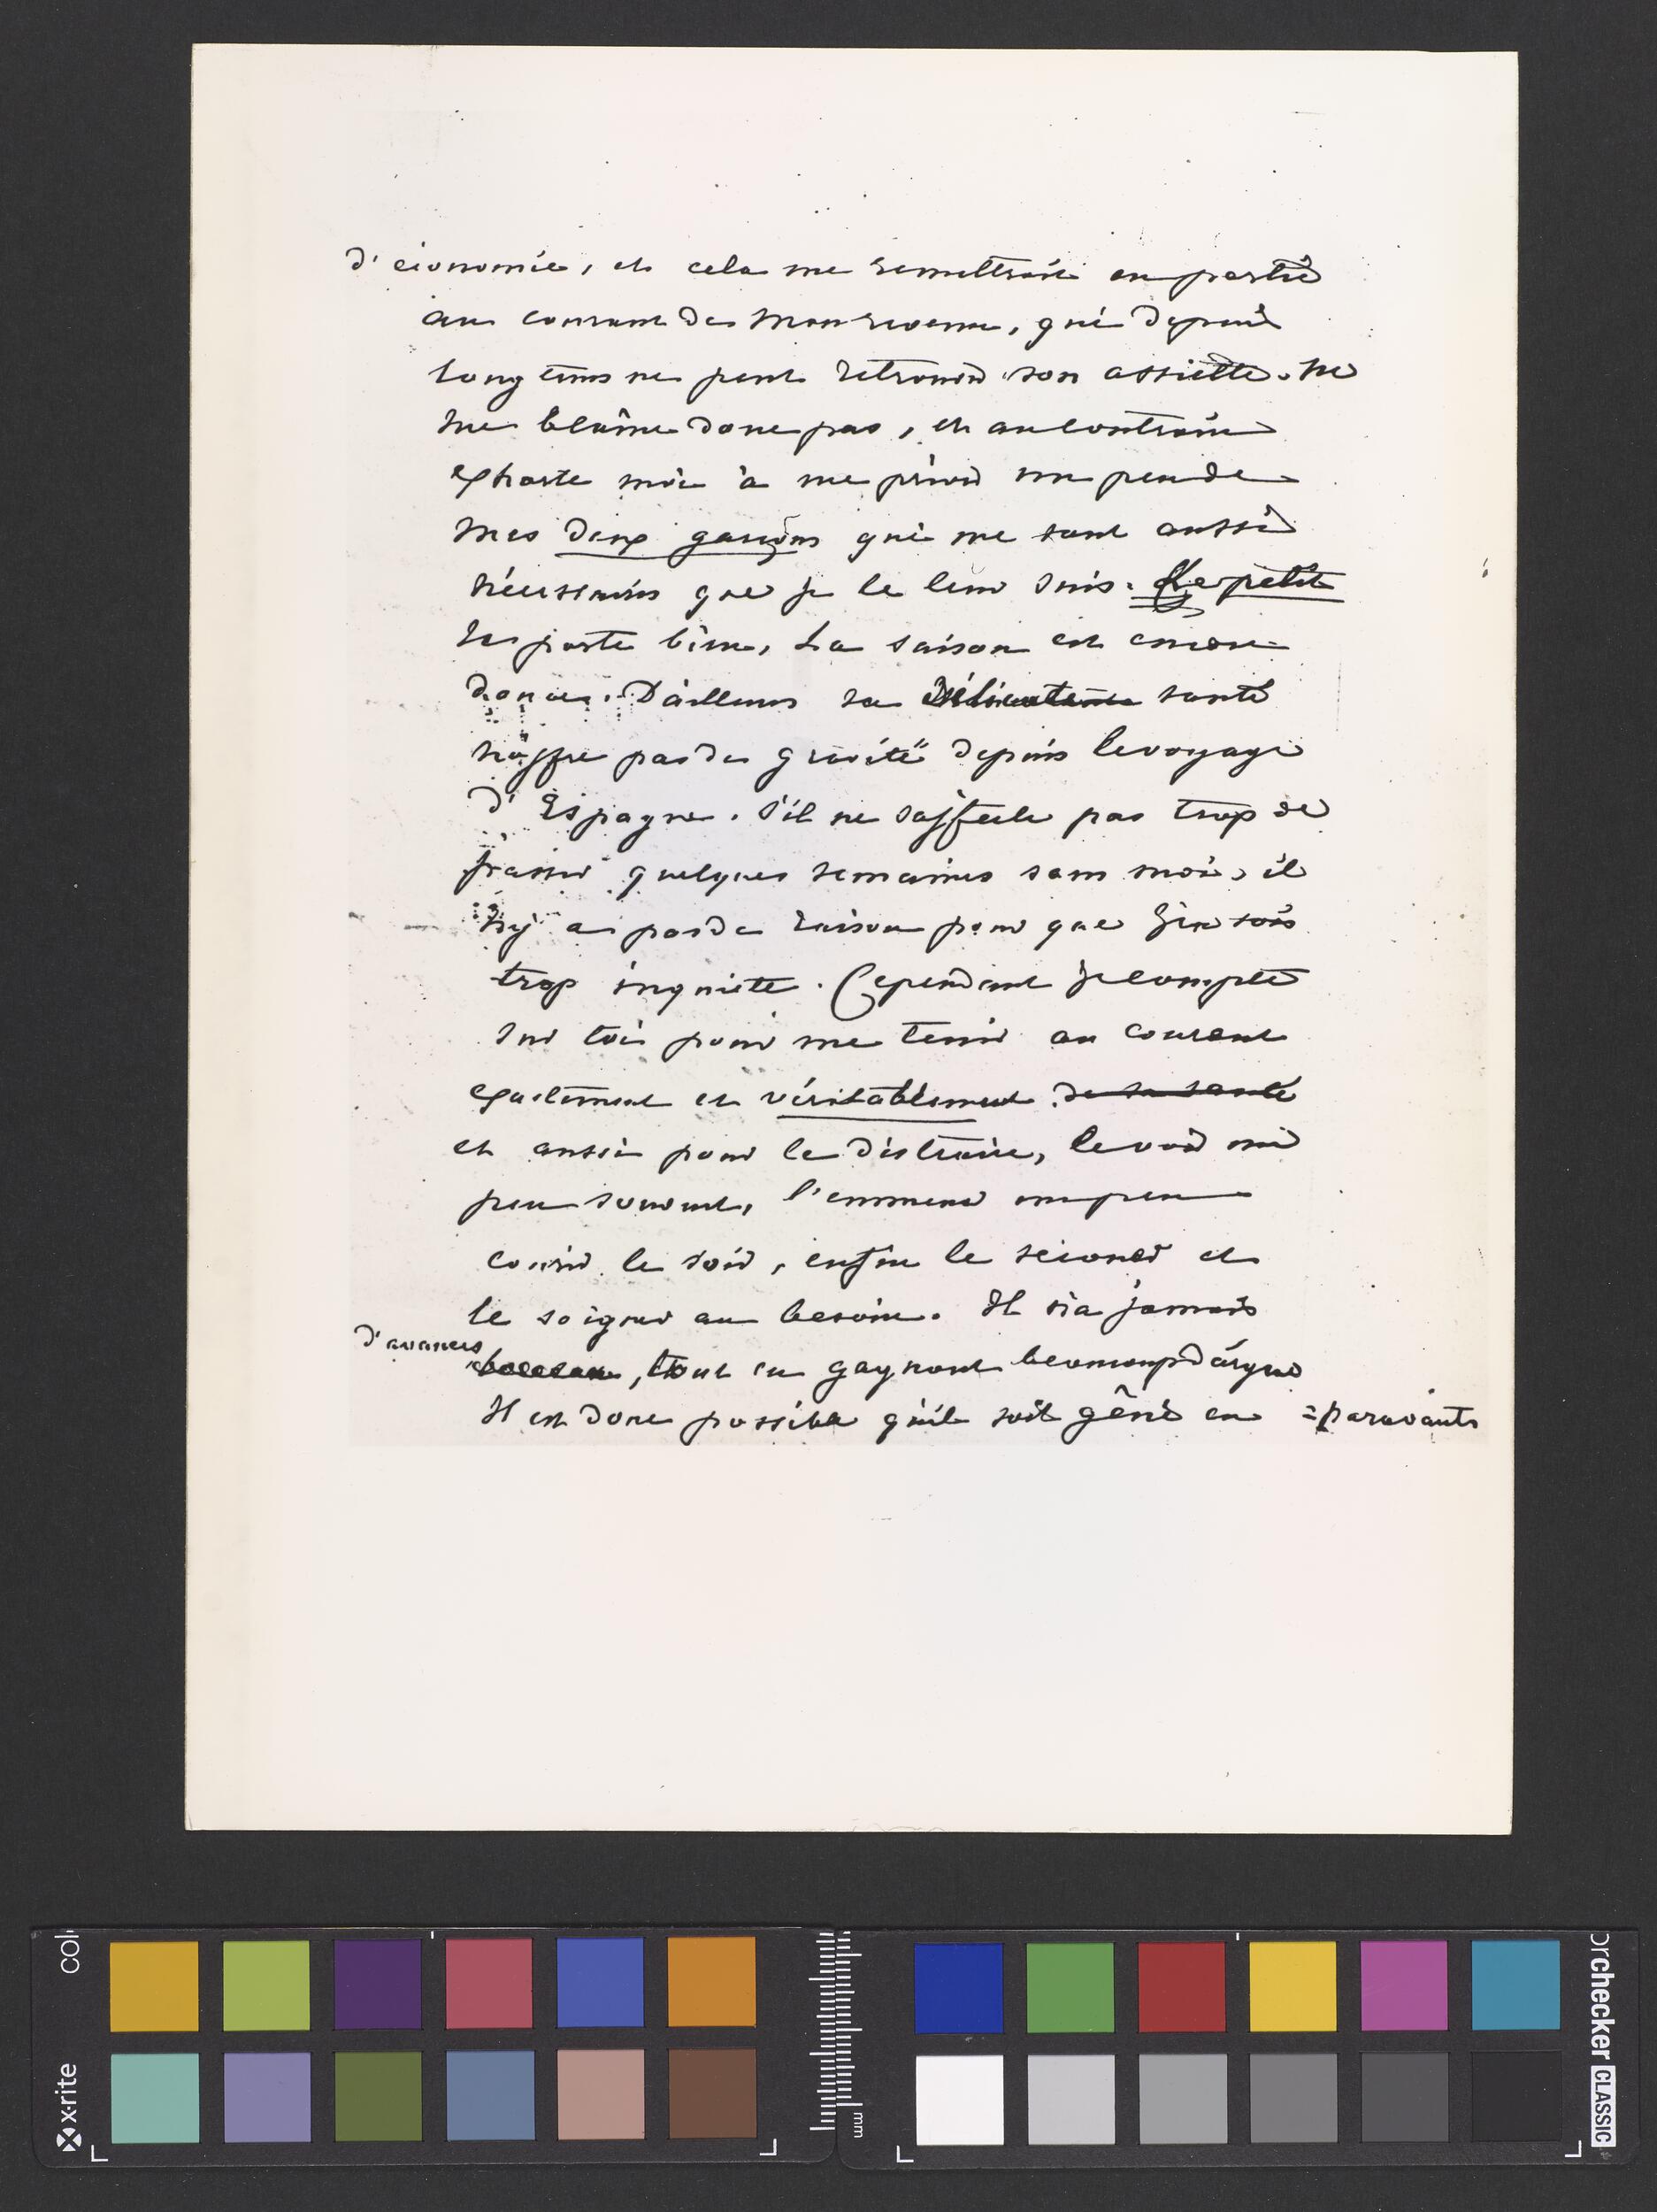 d'économie, et cela me remettroit en partie
au courant de mon revenu, qui depuis
longtems ne peut retrouver son assiette. Ne
me blâme donc pas, et au contraire
exhorte moi à me priver un peu de
mes deux garçons qui me sont aussi
nécessaires que je le leur suis. Le petit
se porte bien, la saison est encore
douce. D'ailleurs sa santé
n'offre pas de gravité depuis le voyage
d'Espagne. S'il ne s'affecte pas trop de
passer quelques semaines sans moi, il
n'y a pas de raison pour que j'en sois
trop inquiète. Cependant je compte
sur toi pour me tenir au courant
exactement et véritablement de sa santé
et aussi pour le distraire, le voir un
peu souvent, l'emmener un peu
courir le soir, enfin le secouer et
le soigner au besoin. Il n'a jamais
d'avances
, tout en gagnant beaucoup d'argent
Il est donc possible qu'il soit gêné en =paravants
x-rite
col
mm
orchecker CLASSIC